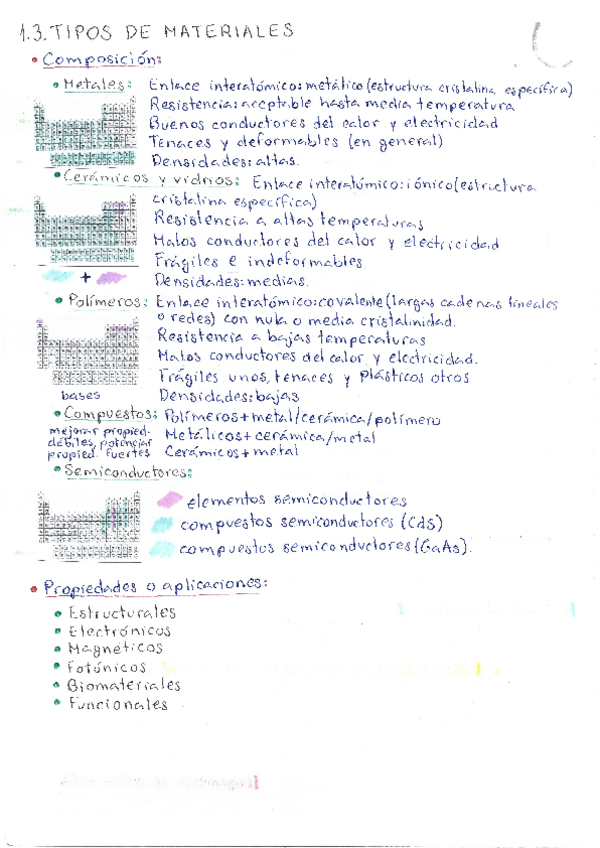 1.3. TIPOS DE MATERIALES
• Composición:
• Metales: Enlace interatómico: metálico (estructura cristalina específica)
Resistencia: aceptable hasta media temperatura
Buenos conductores del calor y electricidad
Tenaces y deformables (en general)
Densidades: altas.
• Cerámicos y vidrios: Enlace interatómico: iónico (estructura
cristalina específica)
Resistencia a altas temperaturas
Malos conductores del calor y electricidad
Frágiles e indeformables
+ Densidades: medias.
• Polímeros: Enlace interatómico: covalente (largas cadenas lineales
o redes) con nula o media cristalinidad.
Resistencia a bajas temperaturas
Malos conductores del calor y electricidad.
Frágiles unos, tenaces y plásticos otros
bases Densidades: bajas
• Compuestos: Polímeros + metal/cerámica/polímero
mejorar propied. Metálicos + cerámica/metal
débiles, potenciar
propied. fuertes Cerámicos + metal
• Semiconductores:
elementos semiconductores
compuestos semiconductores (CdS)
compuestos semiconductores (GaAs).
• Propiedades o aplicaciones:
• Estructurales
• Electrónicos
• Magnéticos
• Fotónicos
• Biomateriales
• Funcionales